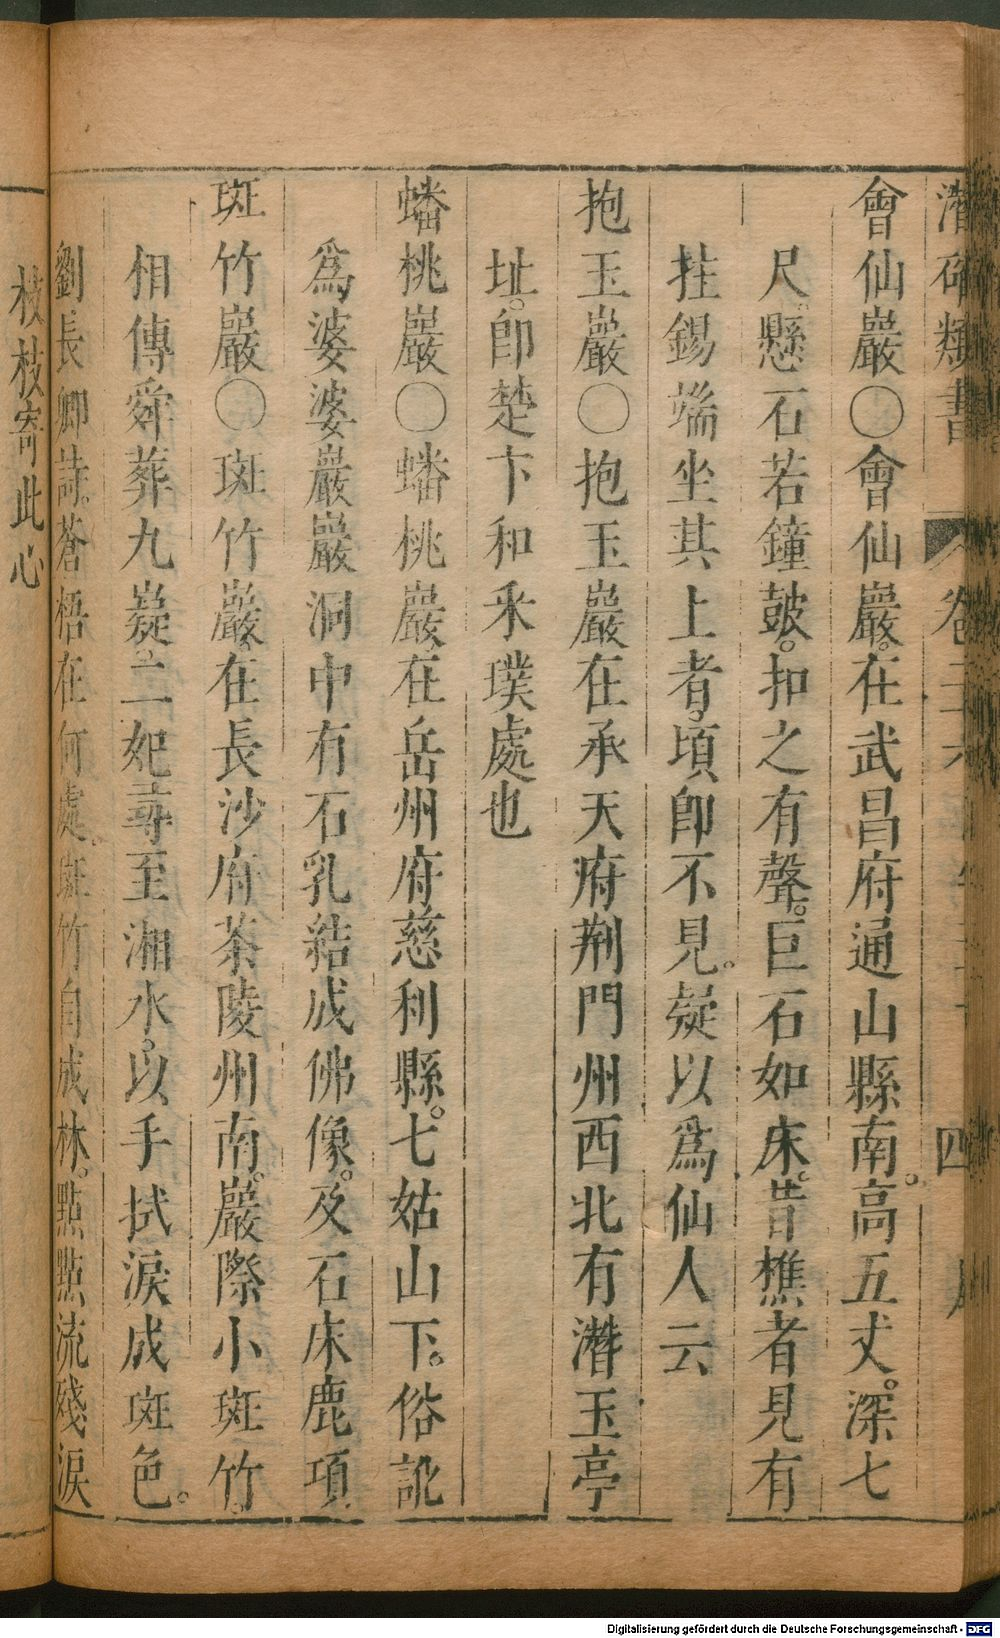 潛確類書 卷二十六 四
會仙巖○會仙巖。在武昌府通山縣南。高五丈。深七
尺。懸石若鐘鼓。扣之有聲。巨石如床。昔樵者見有
拄錫端坐其上者。頃卽不見。疑以爲仙人云
抱玉巖○抱玉巖在承天府荆門州西北有潛玉亭
址。卽楚卞和釆璞處也
蟠桃巖○蟠桃巖在岳州府慈利縣。七姑山下。俗訛
爲婆婆巖巖洞中有石乳結成佛像。及石床鹿項
斑竹巖○斑竹巖。在長沙府茶陵州南。巖際小斑竹。
相傳舜葬九嶷。二妃尋至湘水。以手拭淚成斑色。
劉長卿詩。蒼梧在何處。斑竹自成林。點點流殘淚
枝枝寄此心
Digitalisierung gefördert durch die Deutsche Forschungsgemeinschaft - DFG